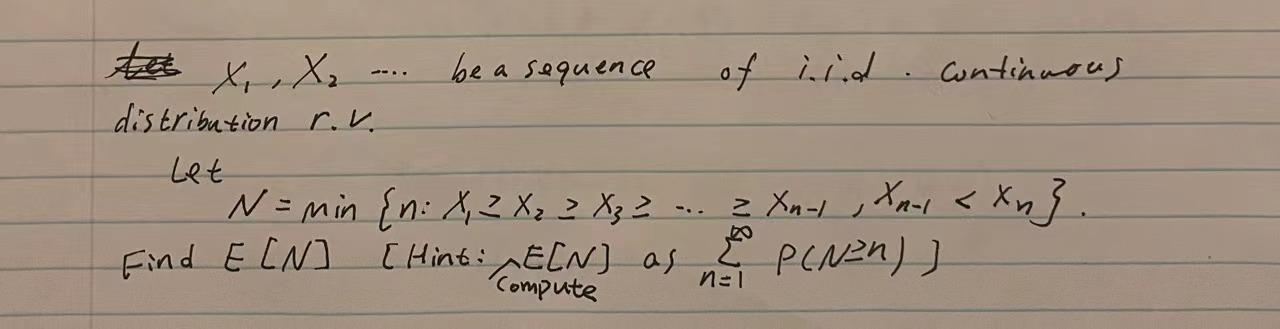 X₁, X₂ .... be a sequence of i.i.d. continuous
distribution r.v.
Let
N = min {n: X₁ ≥ X₂ ≥ X₃ ≥ ... ≥ Xₙ₋₁, Xₙ₋₁ < Xₙ}.
Find E[N] [Hint: compute E[N] as ∑_{n=1}^{∞} P(N≥n)]